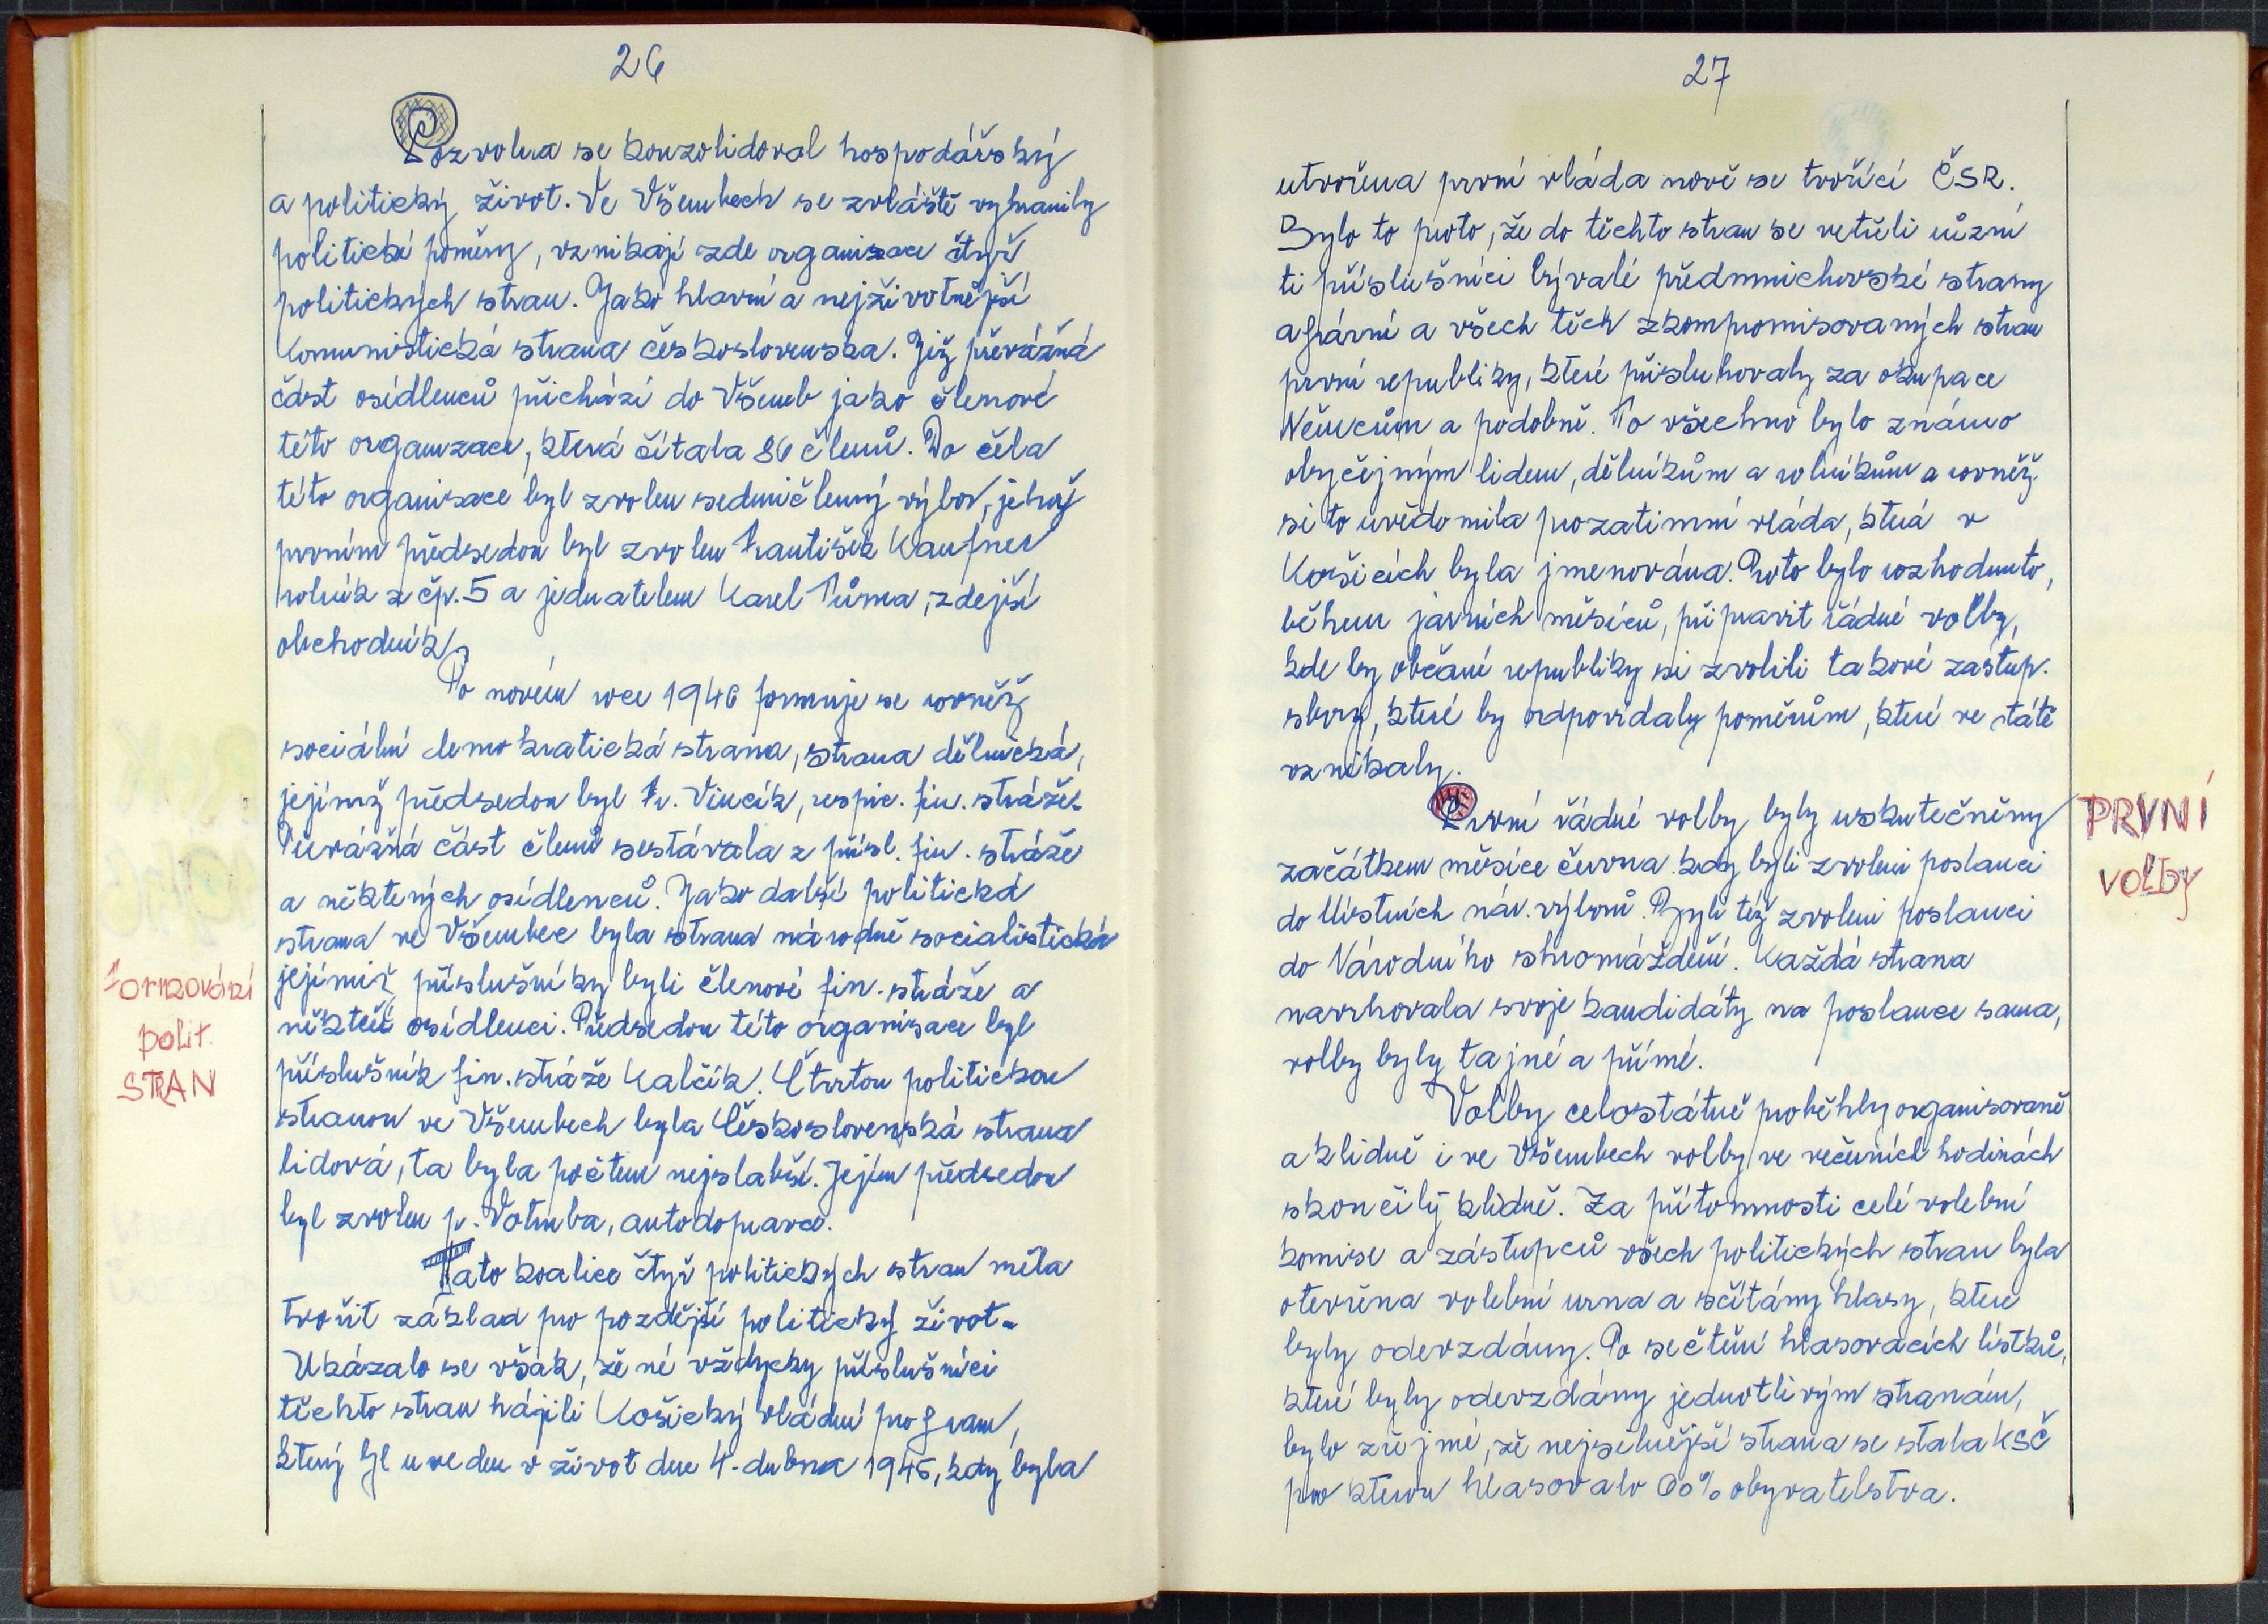 26
Pozvolna se konzolidoval hospodářský
a politický život. Ve Všerubech se zvláště vyhranily
politické poměry, vznikají zde organisace čtyř
politických stran. Jako hlavní a nejživotnější
Komunistická strana československa. Již převážná
část osídlenců přichází do Všerub jako členové
této organizace, která čítala 86 členů. Do čela
této organisace byl zvolen sedmičlenný výbor, jehož
prvním předsedou byl zvolen František Kaufner
rolník z čp. 5 a jednatelem Karel Tůma, zdejší
obchodník.
Po novém roce 1946 formuje se rovněž
sociální demokratická strana, strana dělnická,
jejímž předsedou byl Fr. Vincík, respic. fin. stráže.
Převážná část členů sestávala z přísl. fin. stráže
a některých osídlenců. Jako další politická
strana ve Všerubec byla strana národně socialistická
jejímiž příslušníky byli členové fin. stráže a
někteří osídlenci. Předsedou této organisace byl
příslušník fin. stráže Kalčík. Čtvrtou politickou
stranou ve Všerubech byla Československá strana
lidová, ta byla počtem nejslabší. Jejím předsedou
byl zvolen p. Votruba, autodopravce.
Tato koalice čtyř politických stran měla
tvořit základ pro pozdější politický život.
Ukázalo se však, že né vždycky příslušníci
těchto stran hájili Košický vládní program,
který byl uveden v život dne 4. dubna 1945, kdy byla
Formování
polit.
STRAN
27
utvořena první vláda nově se tvořící ČSR.
Bylo to proto, že do těchto stran se vetřeli různí
ti příslušníci bývalé předmnichovské strany
agrární a všech těch zkompromisovaných stran
první republiky, které přisluhovaly za okupace
Němcům a podobně. To všechno bylo známo
obyčejným lidem, dělníkům a rolníkům a rovněž
si to uvědomila prozatimní vláda, která v
Košicích byla jmenována. Proto bylo rozhodnuto,
během jarních měsíců, připravit řádné volby,
kde by občané republiky si zvolili takové zástup.
sbory, které by odpovídaly poměrům, které ve státě
vznikaly.
První řádné volby byly uskutečněny
začátkem měsíce června kdy byli zvoleni poslanci
do Místních nár. výborů. Byli též zvoleni poslanci
do Národního shromáždění. Každá strana
navrhovala svoje kandidáty na poslance sama,
volby byly tajné a přímé.
Volby celostátně proběhly organisovaně
a klidně i ve Všerubech volby ve večerních hodinách
skončily klidně. Za přítomnosti celé volební
komise a zástupců všech politických stran byla
otevřena volební urna a sčítány hlasy, které
byly odevzdány. Po sečtění hlasovacích lístků,
které byly odevzdány jednotlivým stranám,
bylo zřejmé, že nejsilnější strana se stala KSČ
pro kterou hlasovalo 60% obyvatelstva.
PRVNÍ
VOLBY